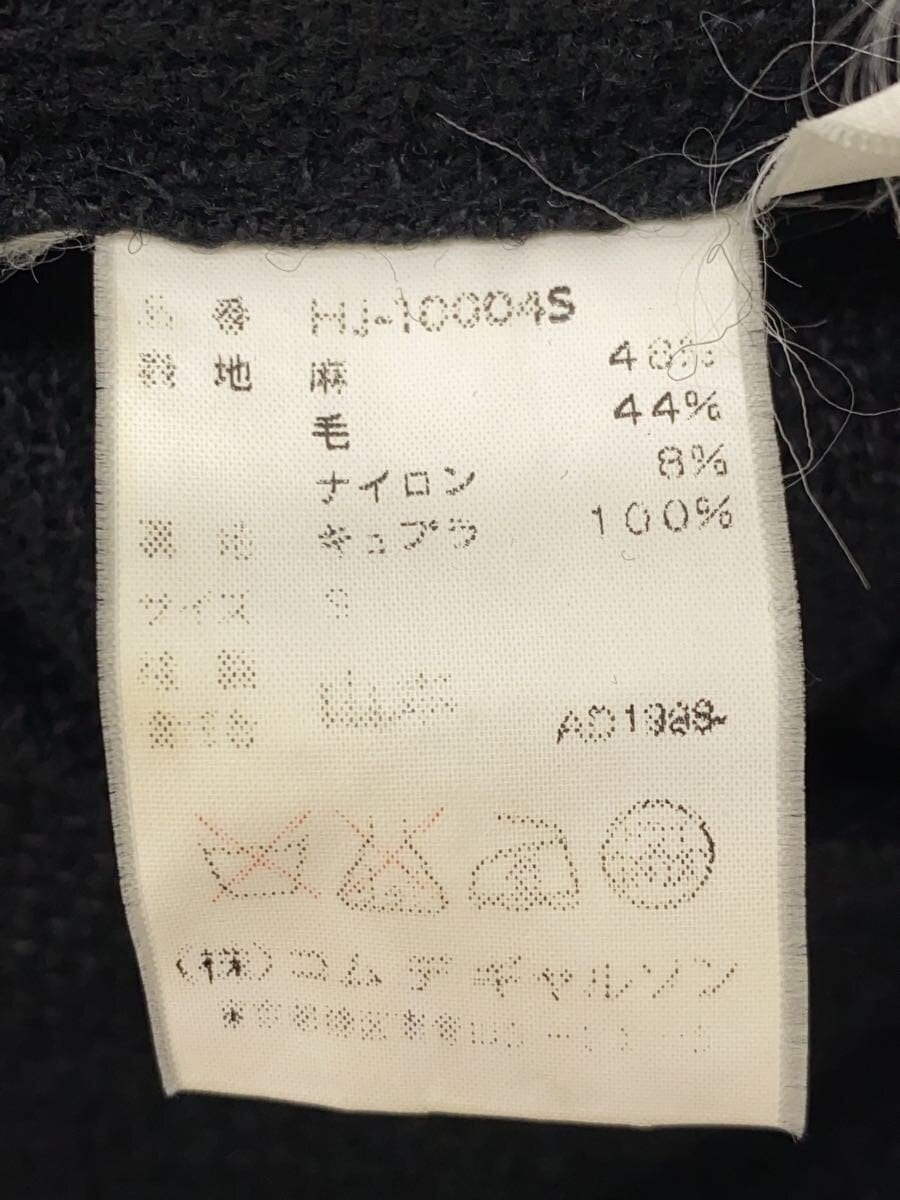 品番 HJ-10004S
表地 麻 48%
毛 44%
ナイロン 8%
裏地 キュプラ 100%
サイズ S
AD1988
(株)コムデギャルソン